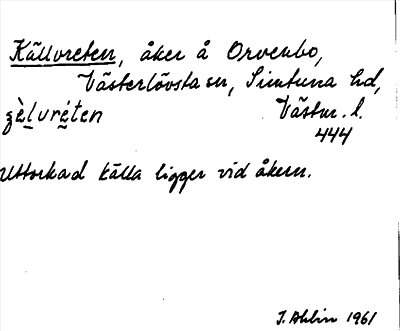 Källvreten, åker å Orvenbo,
Västerlövsta sn, Simtuna hd,
Västm. l.
444
Uttorkad källa ligger vid åkern.
J. Ahlin 1961